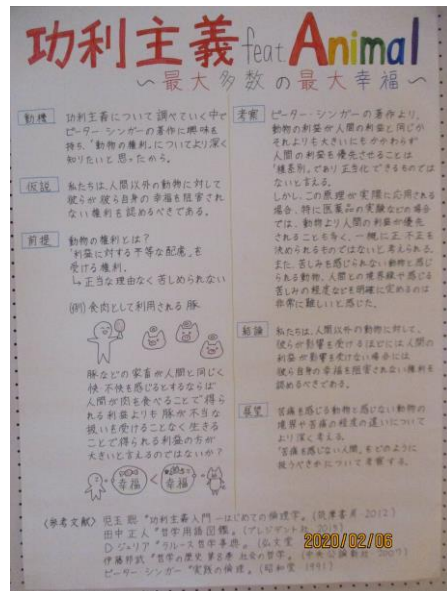 功利主義 feat. Animal
〜最大多数の最大幸福〜
動機
功利主義について調べていく中で
ピーター・シンガーの著作に興味を
持ち、"動物の権利"についてより深く
知りたいと思ったから。
仮説
私たちは、人間以外の動物に対して
彼らが彼ら自身の幸福を阻害され
ない権利を認めるべきである。
前提
動物の権利とは?
"利益に対する平等な配慮"を
受ける権利。
↳正当な理由なく苦しめられない
(例)食肉として利用される豚
豚などの家畜が人間と同じく
快・不快を感じるとするならば
人間が肉を食べることで得ら
れる利益よりも豚が不当な
扱いを受けることなく生きる
ことで得られる利益の方が
大きいと言えるのではないか?
幸福 < 幸福
考察
ピーター・シンガーの著作より、
動物の利益が人間の利益と同じか
それよりも大きいにもかかわらず
人間の利益を優先させることは
"種差別"であり正当化できるものでは
ないと言える。
しかし、この原理が実際に応用される
場合、特に医薬品の実験などの場合
では、動物より人間の利益が優先
されることも多く、一概に正・不正を
決められるものではないと考えられる。
また、苦しみを感じられない動物と感じ
られる動物、人間との境界線や感じる
苦しみの程度などを明確に定めるのは
非常に難しいと感じた。
結論
私たちは、人間以外の動物に対して、
彼らが影響を受けるほどには人間の
利益が影響を受けない場合には
彼ら自身の幸福を阻害されない権利を
認めるべきである。
展望
苦痛を感じる動物と感じない動物の
境界や苦痛の程度の違いについて
より深く考える。
"苦痛を感じない人間"をどのように
扱うべきかについて考察する。
〈参考文献〉児玉 聡 "功利主義入門 ーはじめての倫理学"(筑摩書房・2012)
田中 正人 "哲学用語図鑑"(プレジデント社 2015)
D ジュリア "ラルース哲学事典"(弘文堂
伊藤邦武 "哲学の歴史 第8巻 社会の哲学"(中央公論新社 2007)
ピーター・シンガー "実践の倫理"(昭和堂 1991)
2020/02/06